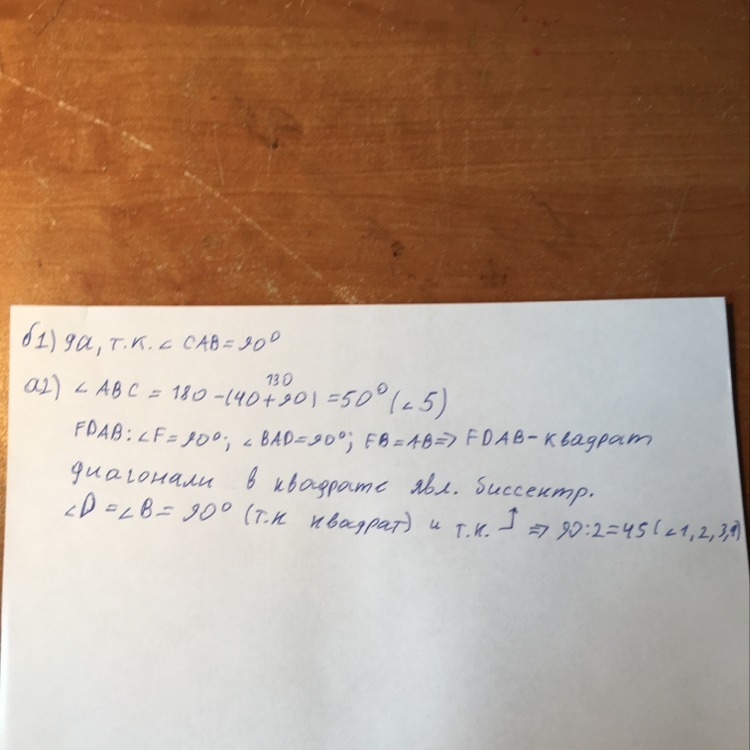 б1) да, т.к. ∠ CAB = 90°
130
а2) ∠ ABC = 180 - (40 + 90) = 50° (∠5)
FDAB: ∠F = 90°; ∠BAD = 90°; FB = AB => FDAB - квадрат
диагонали в квадрате явл. биссектр.
∠D = ∠B = 90° (т.к квадрат) и т.к. ↑ => 90:2 = 45 (∠1, 2, 3, 4)